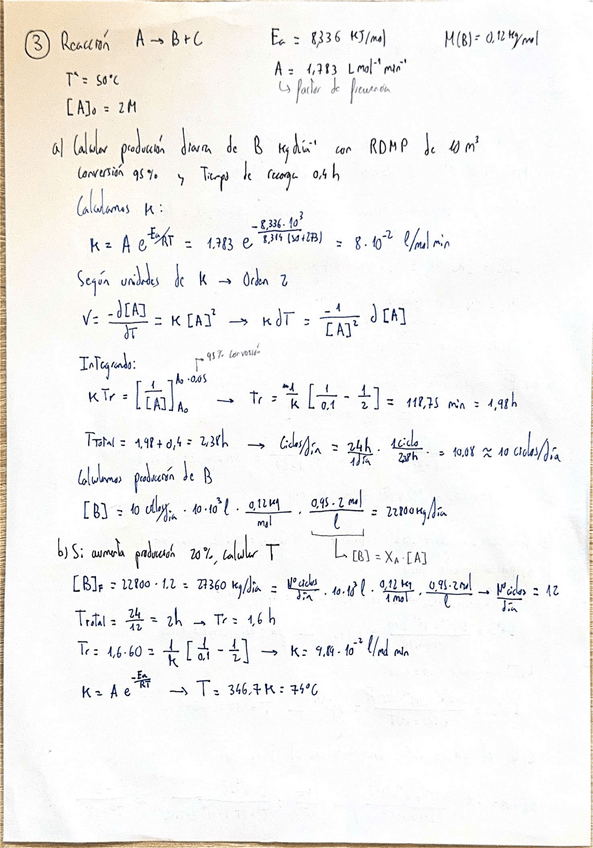 ③ Reacción A → B + C Ea = 8,336 KJ/mol M(B) = 0,12 Kg/mol
Tª = 50ºC A = 1,783 L mol⁻¹ min⁻¹
↳ factor de frecuencia
[A]₀ = 2M
a) Calcular producción diaria de B Kg día⁻¹ con RDMP de 10 m³
conversión 95% y Tiempo de recarga 0,4 h
Calculamos K:
K = A e^(-Ea/RT) = 1.783 e^(-8,336·10³ / 8,314 (50+273)) = 8·10⁻² l/mol min
Según unidades de K → Orden 2
V = -d[A]/dT = K [A]² → K dT = -1/[A]² d[A]
Integrando: 95% conversión
K Tr = [1/[A]] A₀·0.05 A₀ → Tr = 1/K [1/0,1 - 1/2] = 118,75 min = 1,98 h
TTotal = 1,98 + 0,4 = 2,38 h → Ciclos/día = 24h/1día · 1 ciclo/2,38h = 10,08 ≈ 10 ciclos/día
Calculamos producción de B
[B] = 10 ciclos/día · 10·10³ l · 0,12 Kg/mol · 0,95·2 mol/l = 22800 Kg/día
↳ [B] = XA·[A]
b) Si aumenta producción 20%, calcular T
[B]F = 22800 · 1.2 = 27360 Kg/día = Nº ciclos/día · 10·10³ l · 0,12 Kg/1 mol · 0,95·2 mol/l → Nº ciclos/día = 12
TTotal = 24/12 = 2h → Tr = 1,6 h
Tr = 1,6·60 = 1/K [1/0,1 - 1/2] → K = 9,89·10⁻² l/mol min
K = A e^(-Ea/RT) → T = 346,7 K = 74ºC